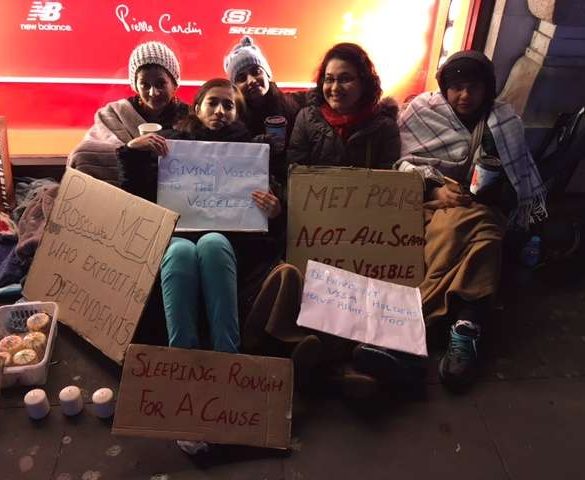 new balance
Pierre Cardin
S
SKECHERS
GIVING VOICE
TO THE
VOICELESS
PROSECUTE MEN
WHO EXPLOIT THEIR
DEPENDENTS
MET POLICE
NOT ALL SCARS
ARE VISIBLE
DEPENDENT
VISA HOLDERS
HAVE RIGHTS TOO
SLEEPING ROUGH
FOR A CAUSE